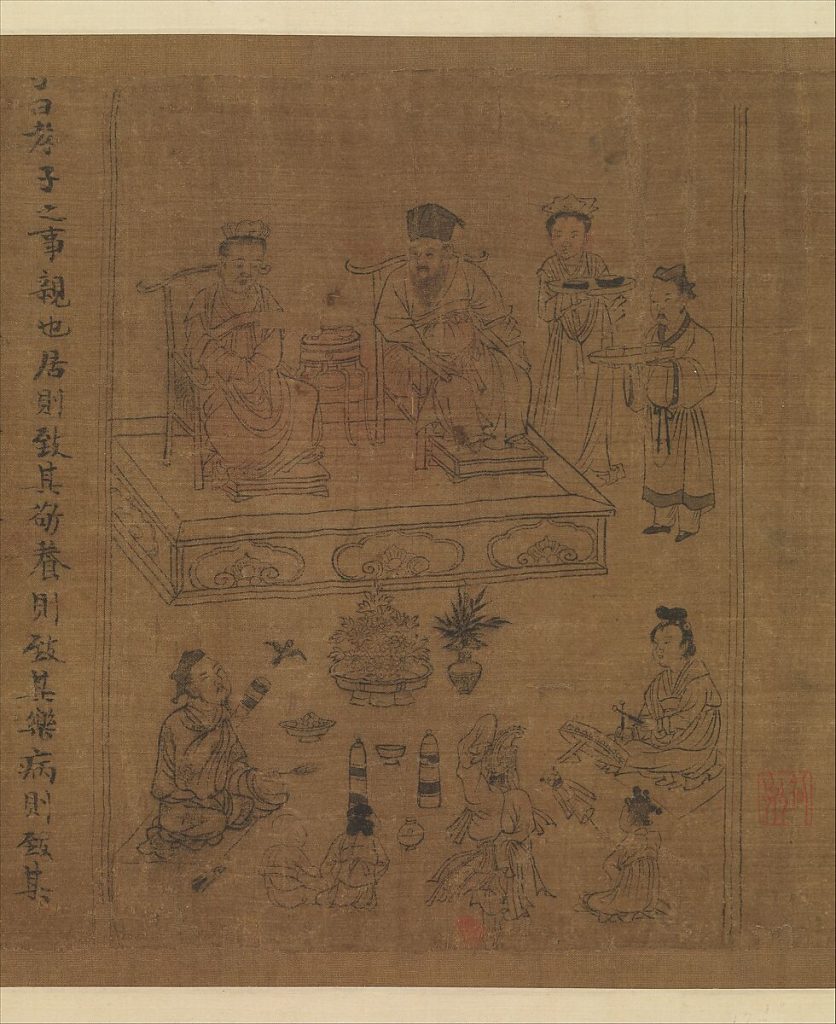 子曰孝子之事親也居則致其敬養則致其樂病則致其